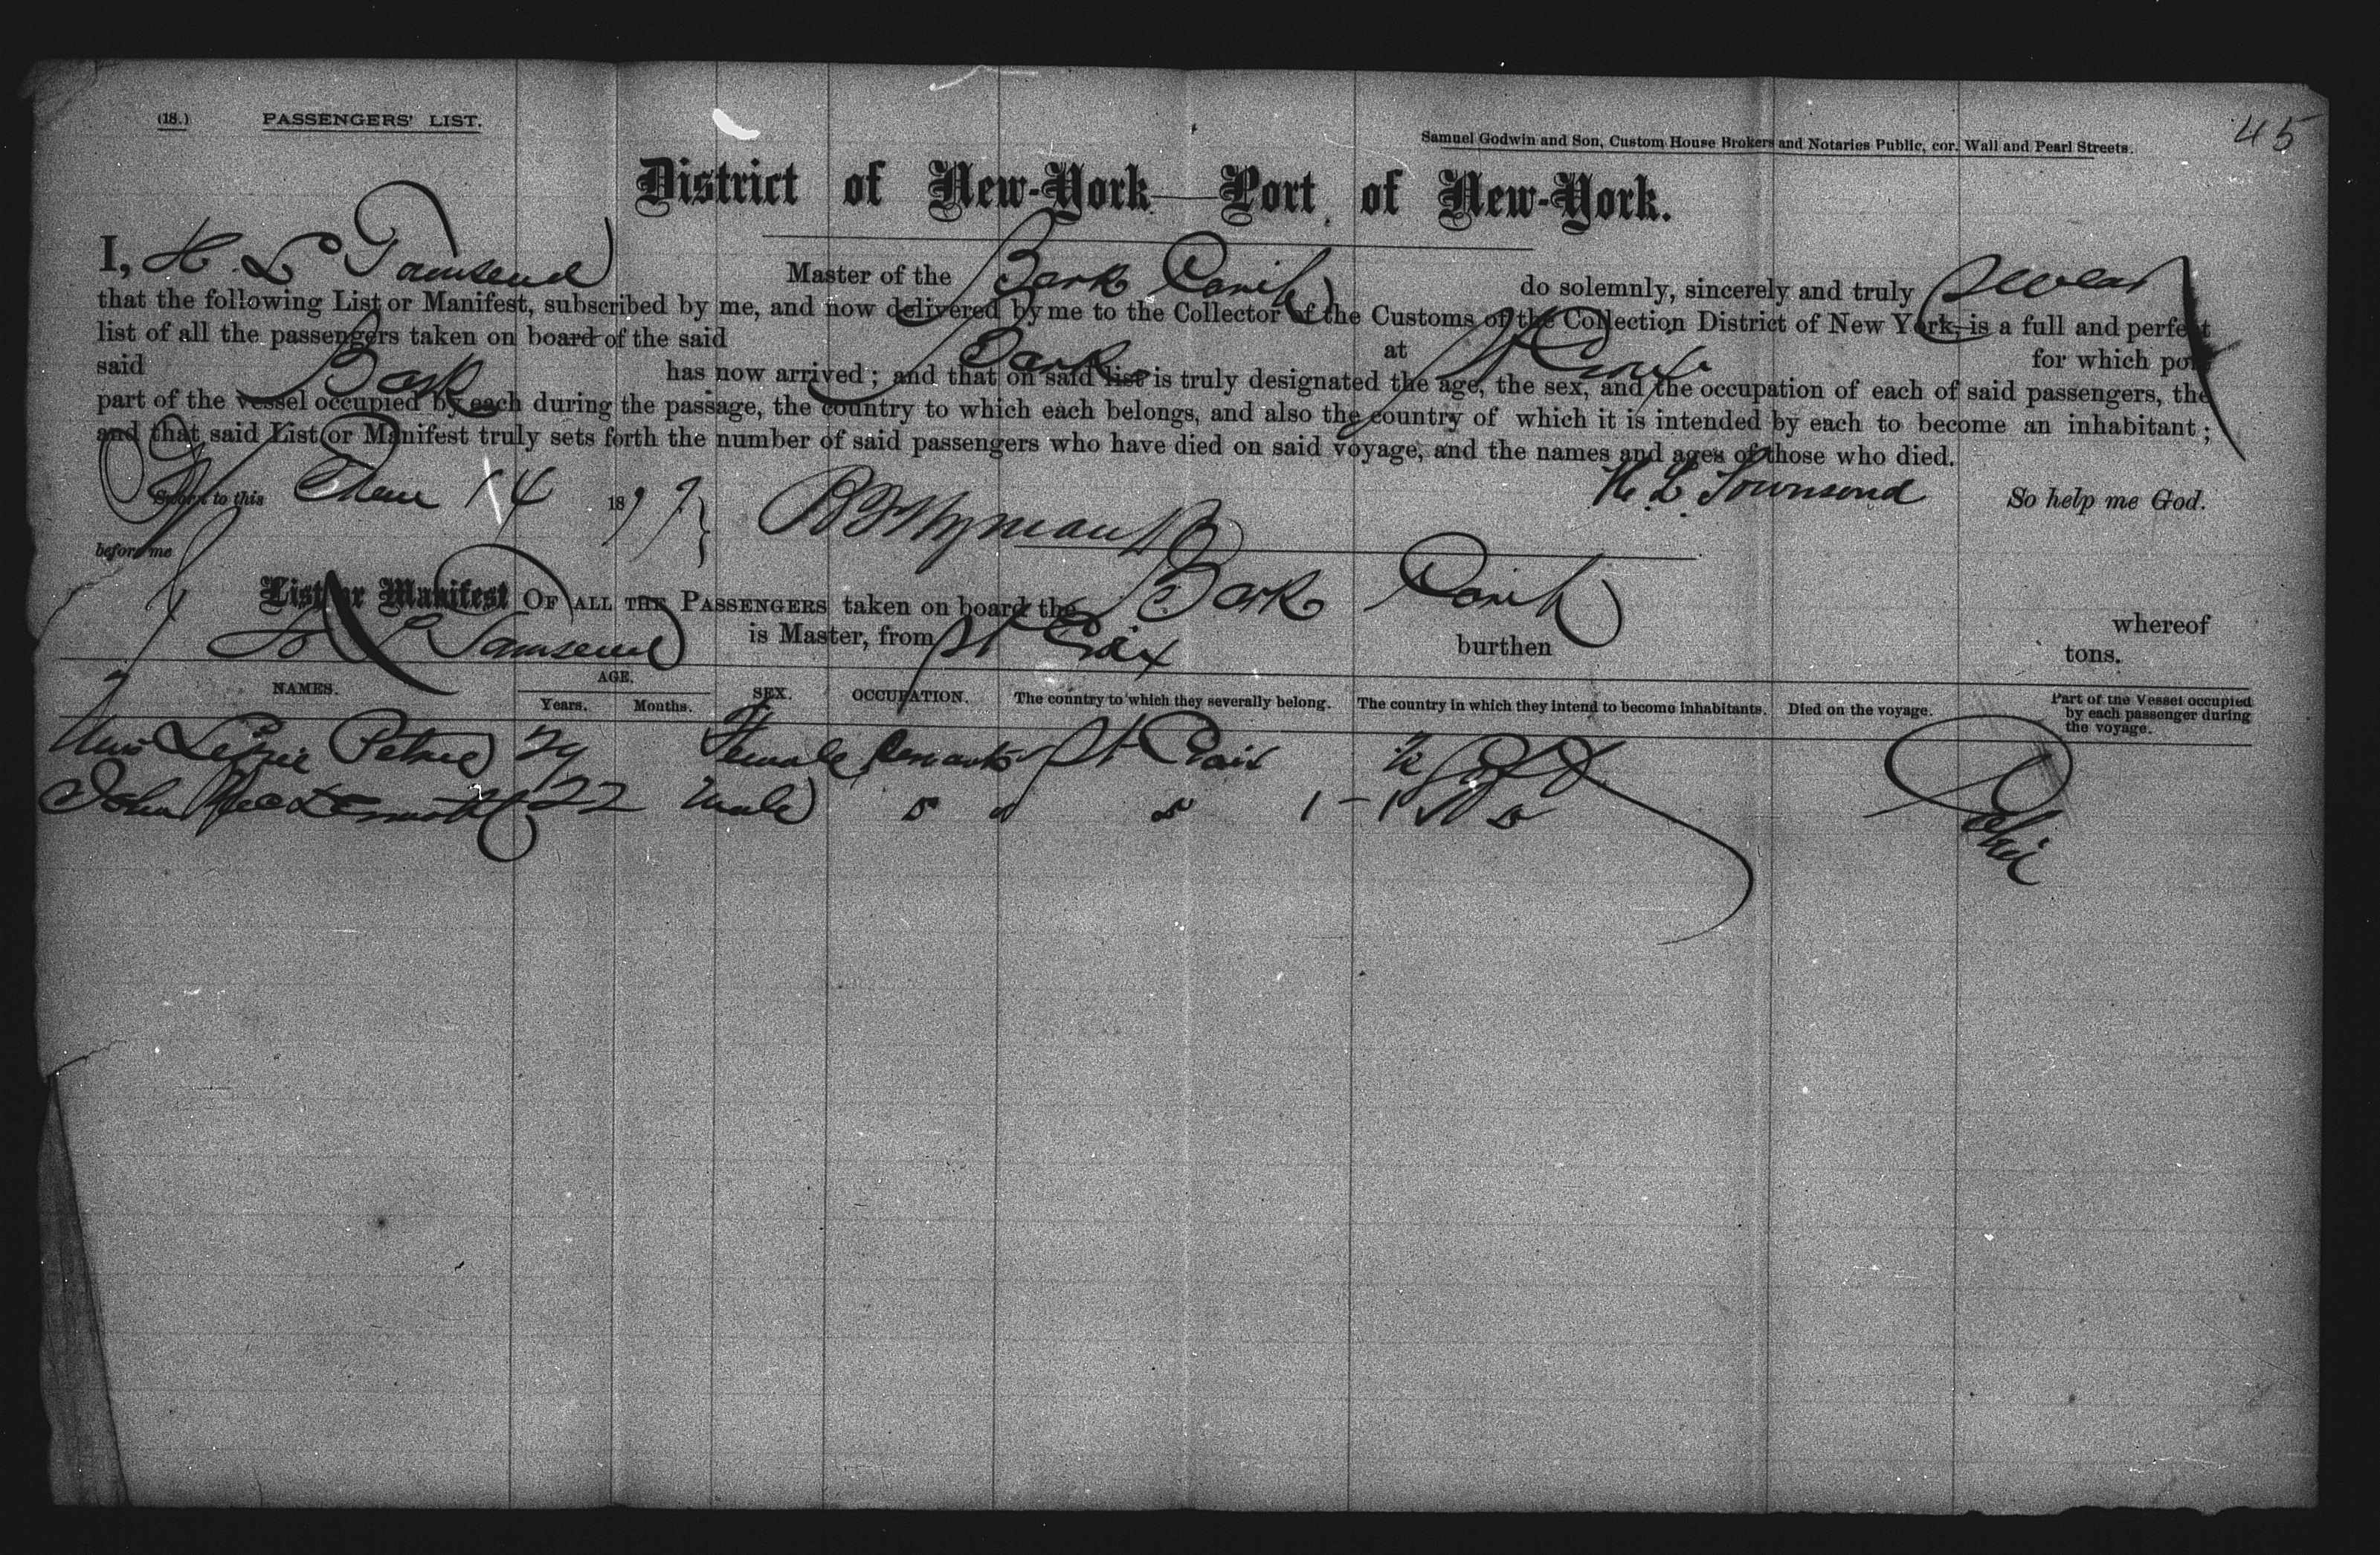 (18.) PASSENGERS' LIST.
45
Samuel Godwin and Son, Custom House Brokers and Notaries Public, cor. Wall and Pearl Streets.
District of New-York—Port of New-York.
I, H. L Townsend Master of the Bark Carib do solemnly, sincerely and truly swear
that the following List or Manifest, subscribed by me, and now delivered by me to the Collector of the Customs of the Collection District of New York, is a full and perfect
list of all the passengers taken on board of the said Bark at St Croix for which port
said Bark has now arrived; and that on said list is truly designated the age, the sex, and the occupation of each of said passengers, the
part of the vessel occupied by each during the passage, the country to which each belongs, and also the country of which it is intended by each to become an inhabitant;
and that said List or Manifest truly sets forth the number of said passengers who have died on said voyage, and the names and ages of those who died.
Sworn to this 14 1897 H. L. Townsend So help me God.
before me
List or Manifest OF ALL THE PASSENGERS taken on board the Bark Carib whereof
H L Townsend is Master, from St Croix burthen tons.
NAMES. AGE. Years. Months. SEX. OCCUPATION. The country to which they severally belong. The country in which they intend to become inhabitants. Died on the voyage. Part of the Vessel occupied by each passenger during the voyage.
Lizzie Female St Croix
John McDermott 22 Male